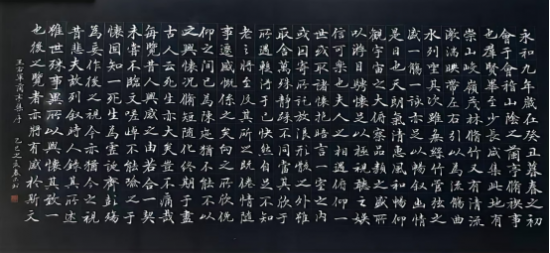 永和九年歲在癸丑暮春之初
會于會稽山陰之蘭亭脩禊事
也群賢畢至少長咸集此地有
崇山峻嶺茂林脩竹又有清流
激湍暎帶左右引以為流觴曲
水列坐其次雖無絲竹管弦之
盛一觴一詠亦足以暢敘幽情
是日也天朗氣清惠風和暢仰
觀宇宙之大俯察品類之盛所
以遊目騁懷足以極視聽之娛
信可樂也夫人之相與俯仰一
世或取諸懷抱悟言一室之內
或因寄所託放浪形骸之外雖
取舍萬殊靜躁不同當其欣於
所遇暫得於己快然自足不知
老之將至及其所之既惓情隨
事遷感慨係之矣向之所欣俛
仰之間已為陳跡猶不能不以
之興懷況脩短隨化終期於盡
古人云死生亦大矣豈不痛哉
每覽昔人興感之由若合一契
未嘗不臨文嗟悼不能喻之于
懷固知一死生為虛誕齊彭殤
為妄作後之視今亦猶今之視
昔悲夫故列敘時人錄其所述
雖世殊事異所以興懷其致一
也後之覽者亦將有感於斯文
王右軍蘭亭集序 乙巳之春